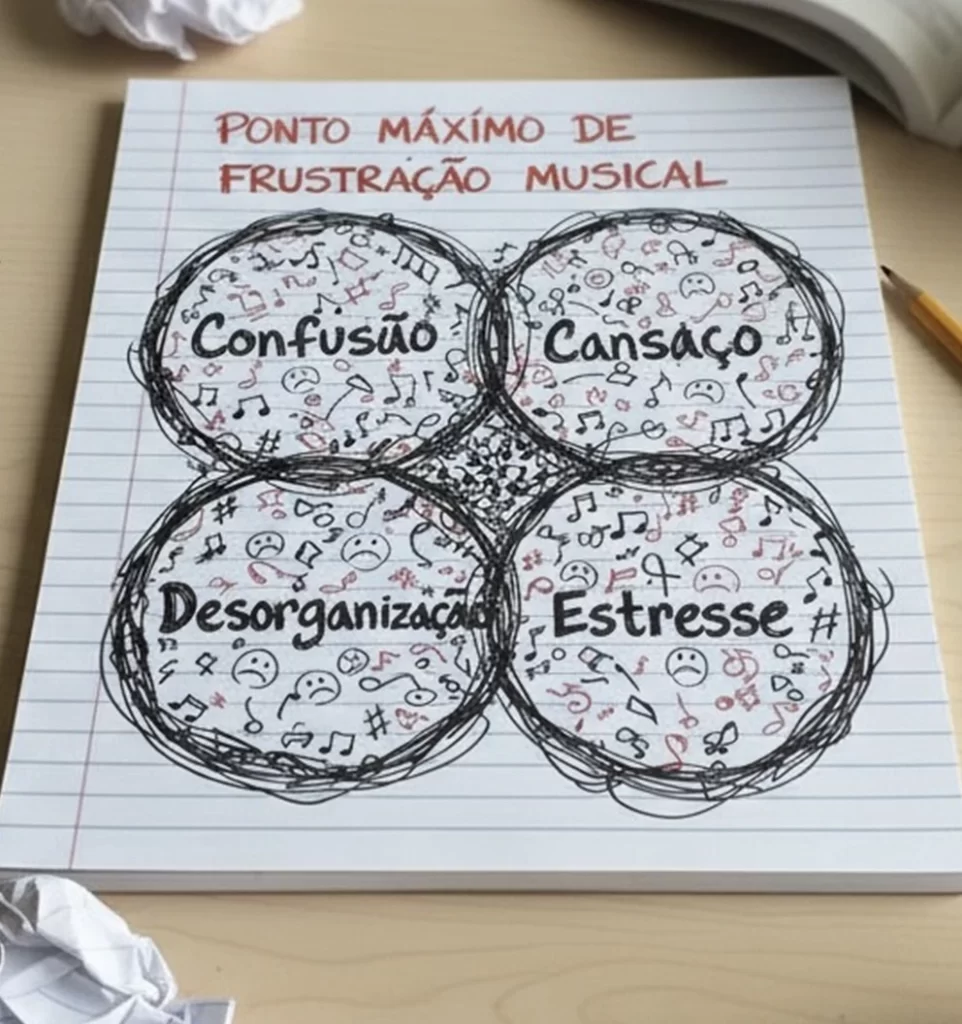 PONTO MÁXÍMO DE
FRUSTRAÇÃO MUSICAL
Confusão
Cansaço
Desorganização
Estresse